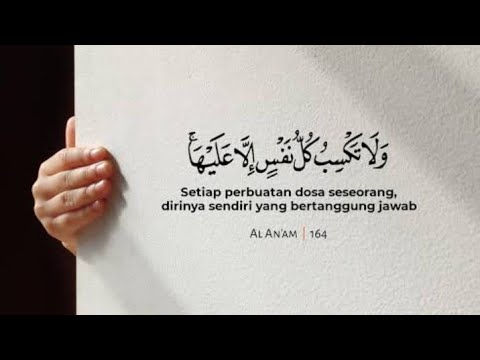 وَلَا تَكْسِبُ كُلُّ نَفْسٍ إِلَّا عَلَيْهَا ۚ
Setiap perbuatan dosa seseorang,
dirinya sendiri yang bertanggung jawab
AL AN'AM | 164